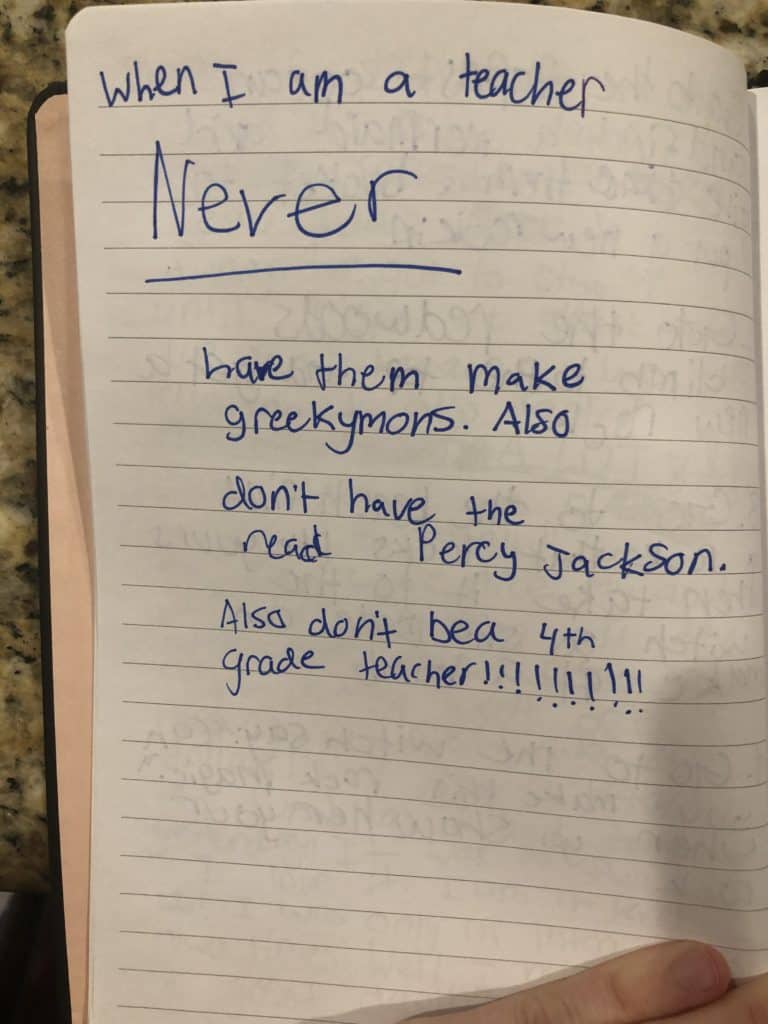 when I am a teacher
Never
have them make
greekymons. Also
don't have the
read Percy Jackson.
Also don't be a 4th
grade teacher!!!!!!!!!!!